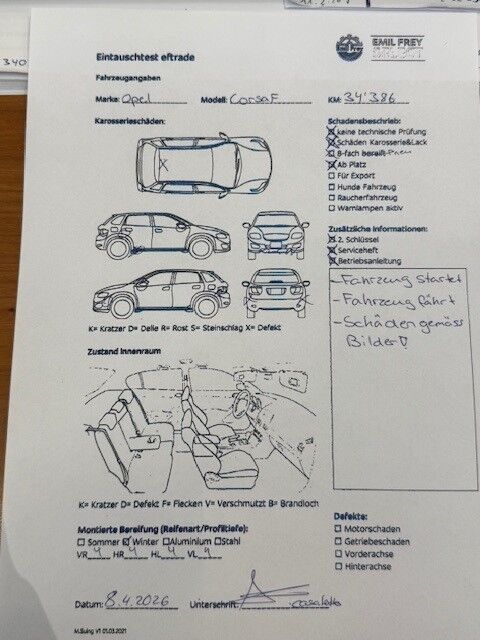 340
EMIL FREY
Emil Frey
Eintauschtest eftrade
Fahrzeugangaben
Marke: Opel Modell: Corsa F KM: 34'386
Karosserieschäden:
X
K= Kratzer D= Delle R= Rost S= Steinschlag X= Defekt
Schadensbeschrieb:
☒ keine technische Prüfung
☒ Schäden Karosserie&Lack
☒ 8-fach bereift
☒ Ab Platz
☐ Für Export
☐ Hunde Fahrzeug
☐ Raucherfahrzeug
☐ Warnlampen aktiv
Zusätzliche Informationen:
☒ 2. Schlüssel
☒ Serviceheft
☒ Betriebsanleitung
- Fahrzeug startet
- Fahrzeug fährt
- Schäden gemäss
Bilder!
Zustand Innenraum
K= Kratzer D= Defekt F= Flecken V= Verschmutzt B= Brandloch
Montierte Bereifung (Reifenart/Profiltiefe):
☐ Sommer ☒ Winter ☐ Aluminium ☐ Stahl
VR 4 HR 4 HL 4 VL 4
Defekte:
☐ Motorschaden
☐ Getriebeschaden
☐ Vorderachse
☐ Hinterachse
Datum: 8.4.2026 Unterschrift:
M.Buing V1 01.03.2021